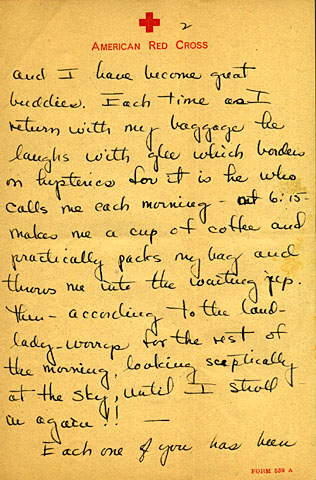 2
AMERICAN RED CROSS
and I have become great
buddies. Each time as I
return with my baggage he
laughs with glee which borders
on hysterics for it is he who
calls me each morning - at 6:15-
makes me a cup of coffee and
practically packs my bag and
throws me into the waiting jeep.
Then - according to the land-
lady - worrys for the rest of
the morning, looking sceptically
at the sky, until I stroll
in again!! —
Each one of you has been
FORM 539 A